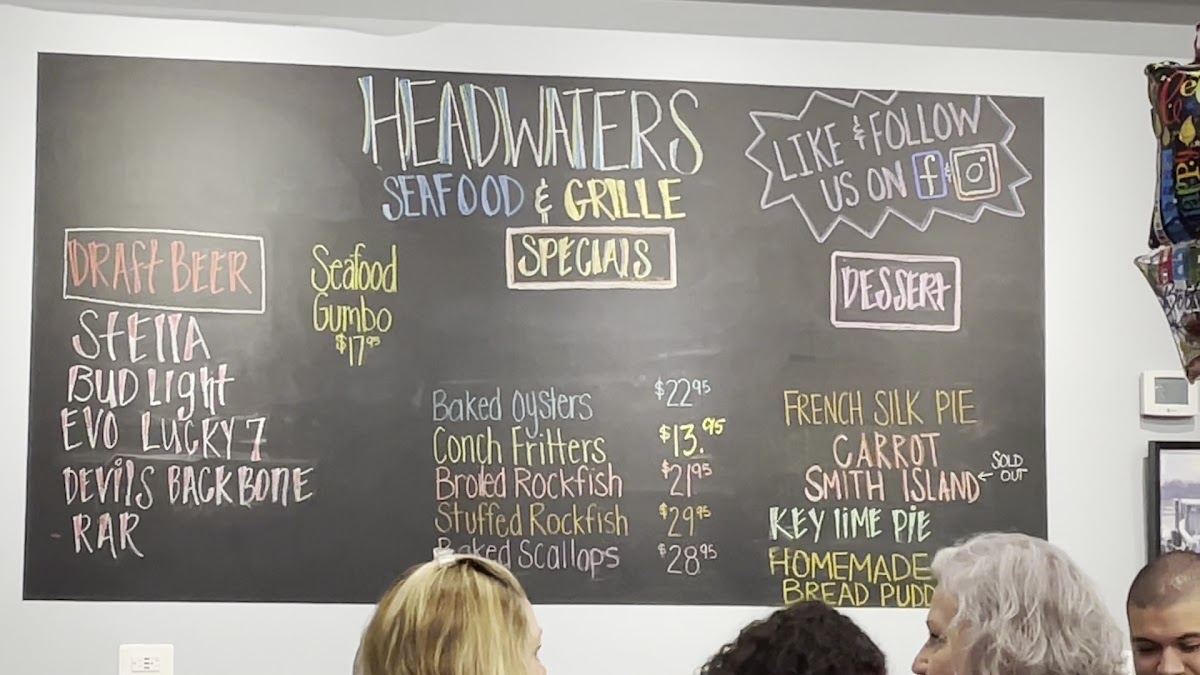 HEADWATERS
SEAFOOD & GRILLE
LIKE & FOLLOW
US ON f &
DRAft BEER
StEllA
BUD LIgHt
EVO LUCKY 7
DEVIlS BACKBONE
RAR
Seafood
Gumbo
$17.95
SPECIAlS
Baked Oysters $22.95
Conch Fritters $13.95
Broled Rockfish $21.95
Stuffed Rockfish $29.95
Baked Scallops $28.95
DESSERt
FRENCH SILK PIE
CARROT
SMITH ISLAND ← SOLD OUT
KEY lIME PIE
HOMEMADE
BREAD